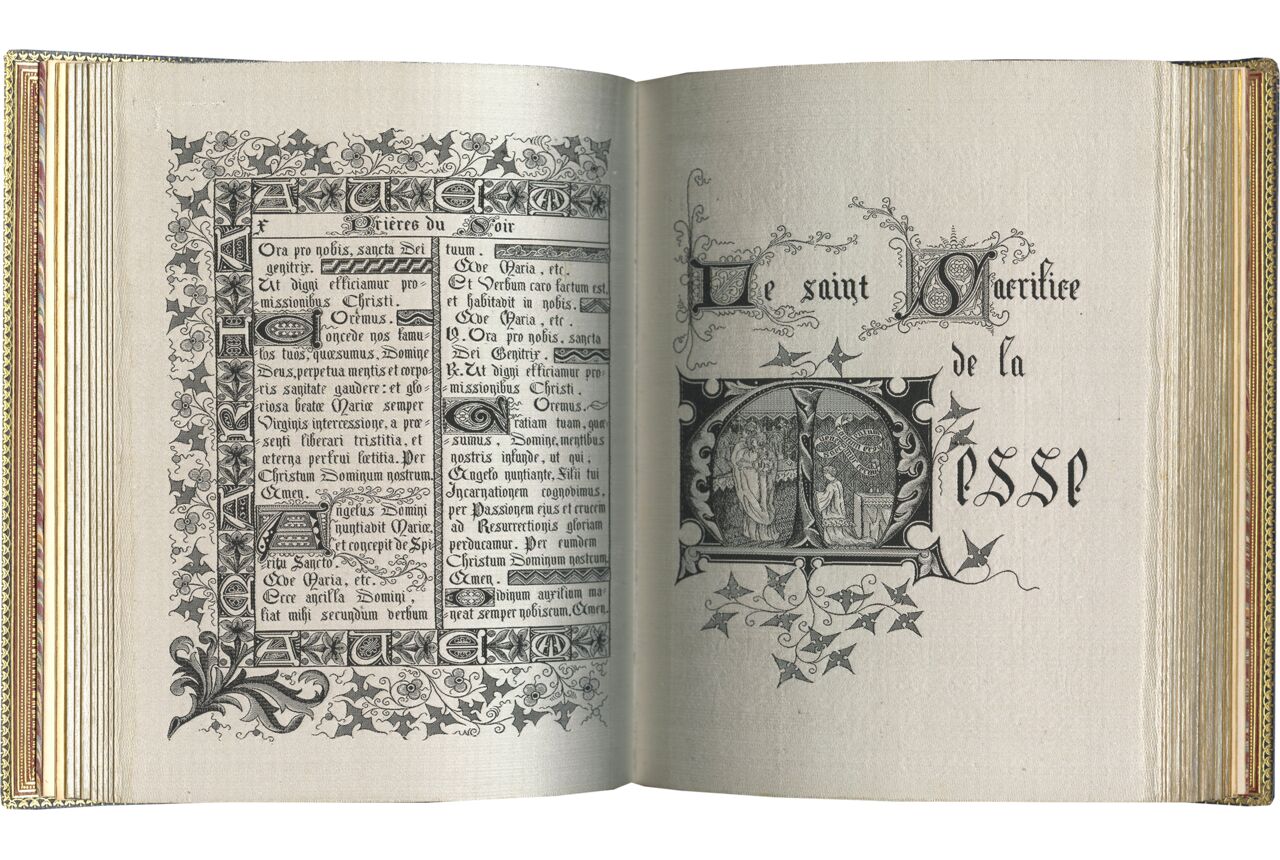 A U E M
Prières du Soir
Ora pro nobis, sancta Dei
genitrix.
Ut digni efficiamur pro-
missionibus Christi.
Orèmus.
Concede nos famu-
los tuos, quæsumus, Domine
Deus, perpetua mentis et corpo-
ris sanitate gaudere: et glo-
riosa beatæ Mariæ semper
Virginis intercessione, a præ-
senti liberari tristitia, et
æterna perfrui lætitia. Per
Christum Dominum nostrum.
Amen.
Angelus Domini
nuntiavit Mariæ,
et concepit de Spi-
ritu Sancto.
Ave Maria, etc.
Ecce ancilla Domini,
fiat mihi secundum verbum
tuum.
Ave Maria, etc.
Et Verbum caro factum est,
et habitavit in nobis.
Ave Maria, etc.
℣. Ora pro nobis, sancta
Dei Genitrix.
℟. Ut digni efficiamur pro-
missionibus Christi.
Oremus.
Gratiam tuam, quæ-
sumus, Domine, mentibus
nostris infunde, ut qui,
Angelo nuntiante, Filii tui
Incarnationem cognovimus,
per Passionem ejus et crucem
ad Resurrectionis gloriam
perducamur. Per eumdem
Christum Dominum nostrum.
Amen.
Divinum auxilium ma-
neat semper nobiscum. Amen.
A U E M
Le saint Sacrifice
de la
Messe